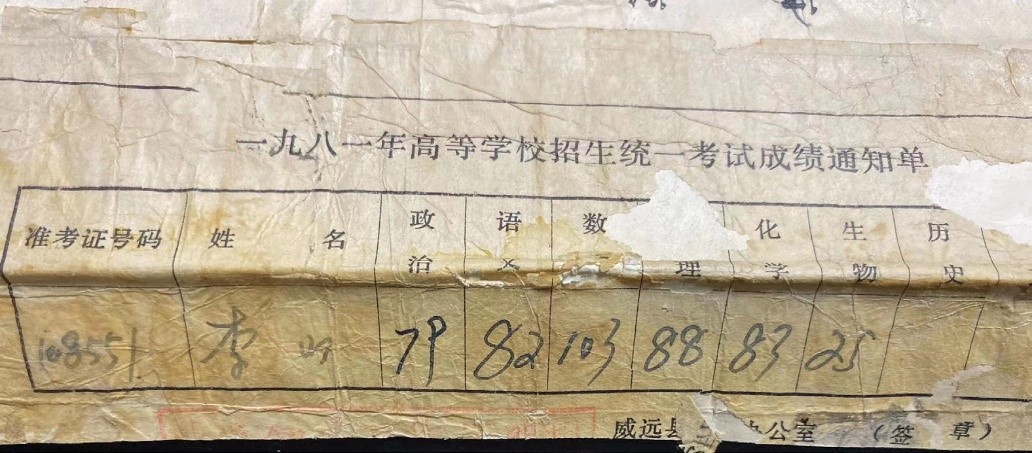 一九八一年高等学校招生统一考试成绩通知单
准考证号码 姓名 政治 语文 数 理 化学 生物 历史
108551 李 79 82 103 88 83 25
威远县 办公室 (签章)